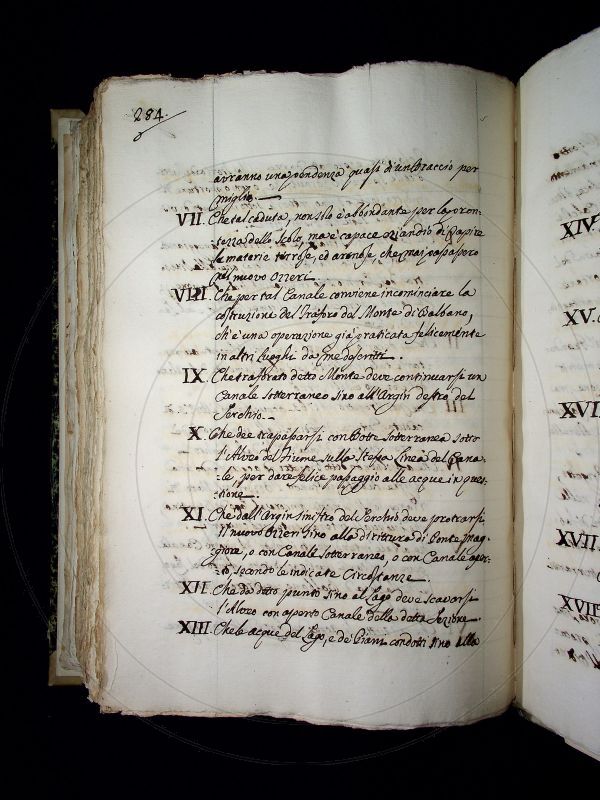 284.
avranno una pendenza quasi di un Braccio per
miglio.
VII. Che tal caduta, non solo è abbondante per la pron-
tezza dello scolo, ma è capace eziandio di rapire
le materie terrose, ed arenose, che mai passassero
nel nuovo Ozzeri.
VIII. Che per tal Canale conviene incominciare la
costruzione del Traforo del Monte di Balbano,
ch'è una operazione già praticata felicemente
in altri luoghi da me descritti.
IX. Che traforato detto Monte deve continuarsi un
Canale sotterraneo sino all'Argin destro del
Serchio.
X. Che dee trapassarsi con Botte sotterranea sotto
l'Alveo del Fiume sulla stessa Linea del Cana-
le, per dare felice passaggio alle acque in ques-
tione.
XI. Che dall'Argin sinistro del Serchio deve protrarsi
il nuovo Ozzeri sino alla dirittura di Ponte mag-
giore, o con Canale sotterraneo, o con Canale aper-
to secondo le indicate Circostanze.
XII. Che da detto punto sino al Lago deve scavarsi
l'Alveo con aperto Canale della detta Sezione.
XIII. Che le acque del Lago, e de' Piani condotti sino alla
XIV.
XV.
XVI
XVII
XVIII